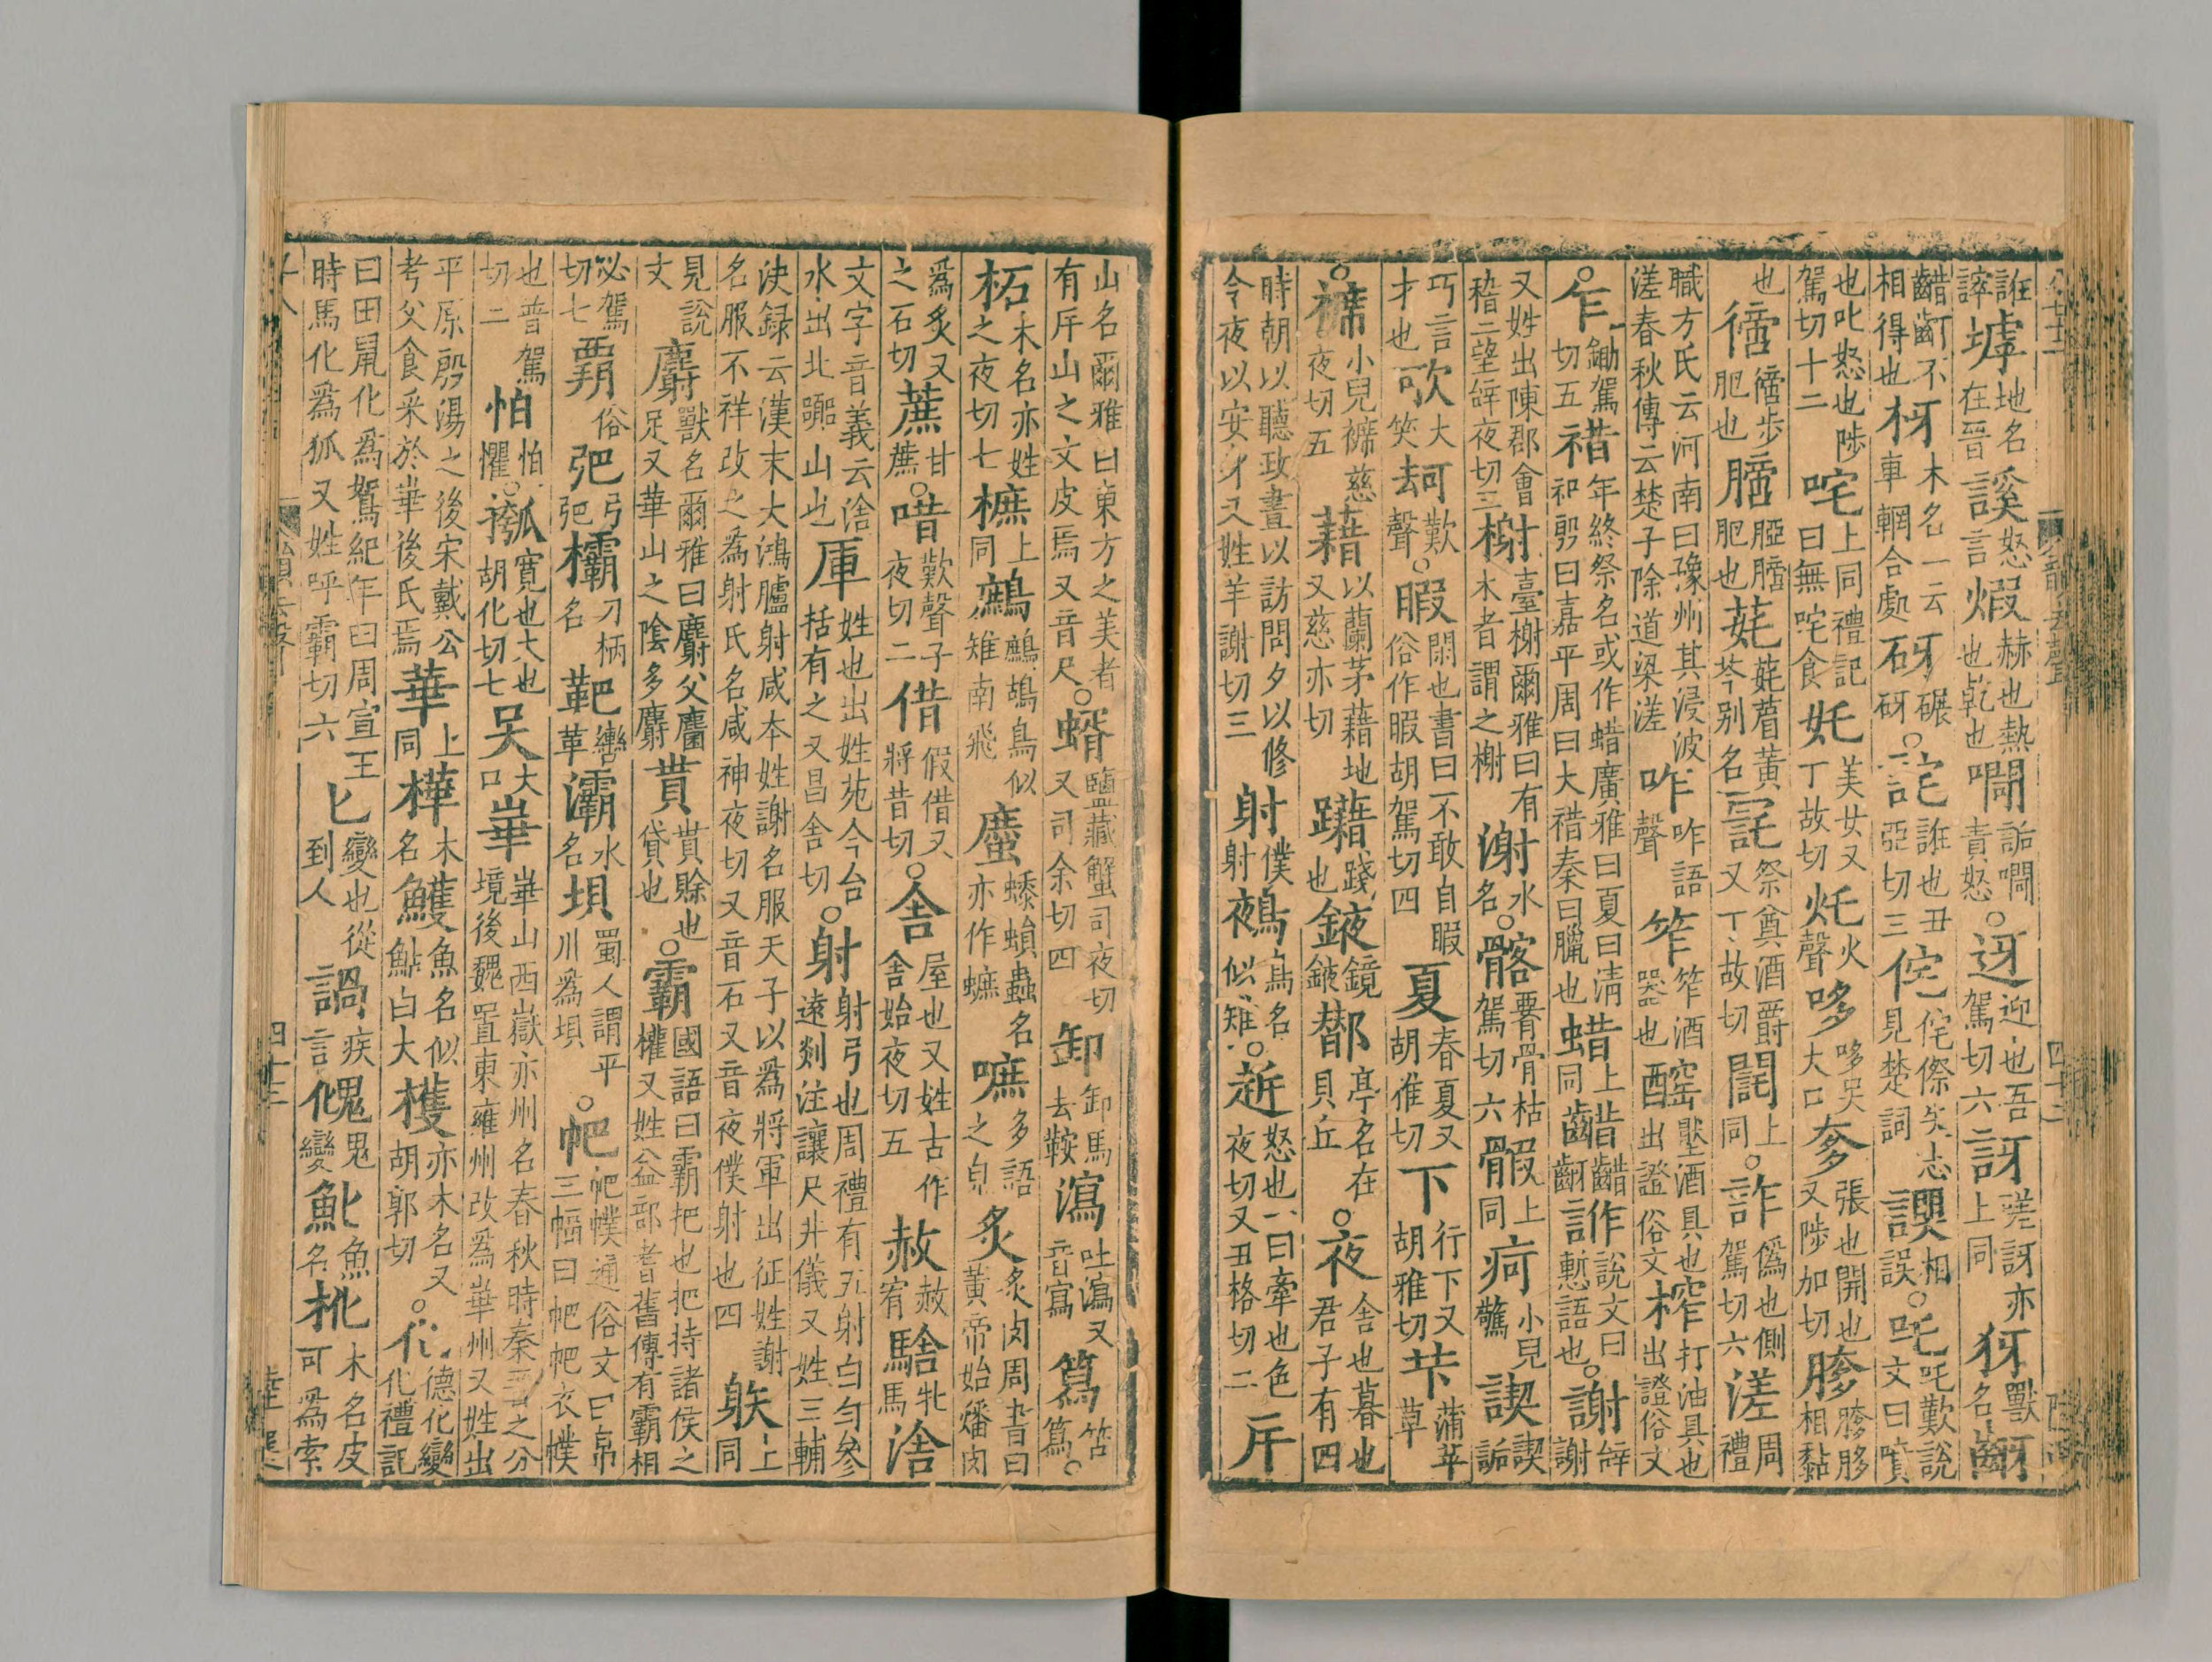 誑誶㙤地名在晉謑怒言煆赫也熱也乾也㗿訨㗿責怒○迓迎也吾駕切六訝嗟訝亦上同犽獸名齖
齰齖不相得也枒木名一云車輞合處砑碾砑○詫誑也丑亞切三侘侘傺失志見楚詞䜏相誤○吒吒歎說文曰噴
也叱怒也陟駕切十二咤上同禮記曰無咤食奼美女又丁故切灹火聲哆哆吳大口奓張也開也又陟加切䐒䐒䏧相黏
也徻徻步肥也膪䐔膪肥也𦯔𦯔葿黃芩别名𡨧祭奠酒爵又丁故切䦉上同○詐偽也側駕切六溠周禮
職方氏云河南曰豫州其浸波溠春秋傳云楚子除道梁溠咋咋語聲笮笮酒器也醡窄壓酒具也出證俗文榨打油具也出證俗文
○乍鋤駕切五䄍年終祭名或作蜡廣雅曰夏曰清祀殷曰嘉平周曰大䄍秦曰臘也蜡上同齰齰齖䛐說文曰慙語也○謝辝謝
又姓出陳郡會稽二望辝夜切三榭臺榭爾雅曰有木者謂之榭㴬水名○髂䯊骨枯駕切六䯊上同疴小兒驚䜁䜁詬
巧言才也㰤大笑㰦歎聲○暇閑也書曰不敢自暇俗作暇胡駕切四夏春夏又胡雅切下行下又胡雅切芐蒲苹草
○褯小兒褯慈夜切五藉以蘭茅藉地又慈亦切躤踐也䤳鏡䤳䣢亭名在貝丘○夜舍也暮也君子有四
時朝以聽政晝以訪問夕以修令夜以安身又姓羊謝切三射僕射鵺鳥名似雉○𨒋怒也一曰牽也色夜切又丑格切二斥
山名爾雅曰東方之美者有斥山之文皮焉又音尺○蝑鹽藏蟹司夜切又司余切四卸卸馬去鞍瀉吐瀉又音寫䈔笘䈔○
柘木名亦姓之夜切七樜上同鷓鷓鴣鳥似雉南飛䗪蟅螾蟲名亦作蟅嗻多語之皃炙炙肉周書曰黃帝始燔肉
為炙又之石切蔗甘蔗○唶歎聲子夜切二借假借又將昔切○舍屋也又姓古作舍始夜切五赦赦宥騇牝馬涻
文字音義云涻水出北嚻山也厙姓也出姓苑今台括有之又昌舍切○射射弓也周禮有五射白勻參遠剡注讓尺井儀又姓三輔
決録云漢末大鴻臚射咸本姓謝名服天子以為將軍出征姓謝名服不祥改之為射氏名咸神夜切又音石又音夜僕射也四䠶上同
見說文麝獸名爾雅曰麝父麕足又華山之陰多麝貰貰賒也貸也○霸國語曰霸把也把持諸侯之權又姓益部耆舊傳有霸相
必駕切七覇俗弝弓弝欛刀柄名靶轡革灞水名垻蜀人謂平川為垻○帊帊幞通俗文曰帛三幅曰帊帊衣幞
也普駕切二怕怕懼○摦寬也大也胡化切七吴大口崋崋山西嶽亦州名春秋時秦晉之分境後魏置東雍州改為崋州又姓出
平原殷湯之後宋戴公考父食采於崋後氏焉華上同樺木名鱯魚名似鮎白大檴亦木名又胡郭切○化德化變化禮記
曰田鼠化為鴽紀年曰周宣王時馬化為狐又姓呼霸切六匕變也從到人䛡疾言傀鬼變魤魚名杹木名皮可為索